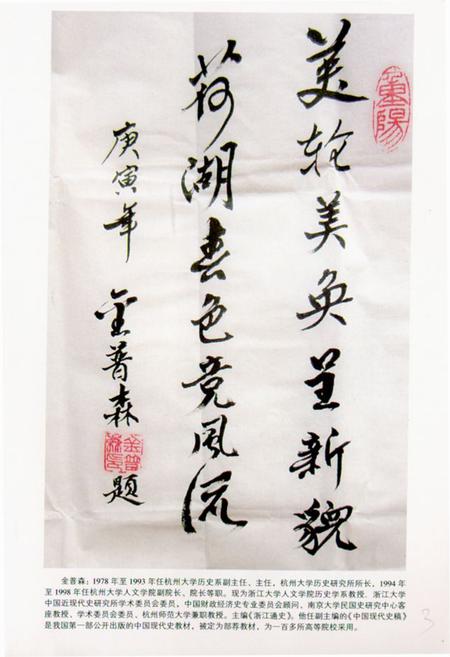 美轮美奂呈新貌
荷湖春色竞风流
庚寅年
金普森
题
东阳
金普森:1978年至1993年任杭州大学历史系副主任、主任,杭州大学历史研究所所长,1994年
至1998年任杭州大学人文学院副院长、院长等职。现为浙江大学人文学院历史学系教授、浙江大学
中国近现代史研究所学术委员会委员,中国财政经济史专业委员会顾问,南京大学民国史研究中心客
座教授、学术委员会委员、杭州师范大学兼职教授。主编《浙江通史》。他任副主编的《中国现代史稿》
是我国第一部公开出版的中国现代史教材,被定为部荐教材,为一百多所高等院校采用。
3